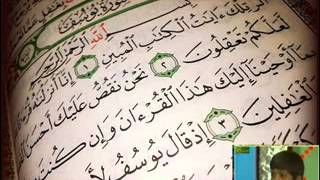 سُورَةُ يُوسُفَ
ٱللَّهِ ٱلرَّحْمَٰنِ
تِلْكَ ءَايَٰتُ ٱلْكِتَٰبِ ٱلْمُبِينِ ١ إِنَّآ أَنزَلْنَٰهُ
لَّعَلَّكُمْ تَعْقِلُونَ ٢ نَحْنُ نَقُصُّ عَلَيْكَ أَحْسَنَ
بِمَآ أَوْحَيْنَآ إِلَيْكَ هَٰذَا ٱلْقُرْءَانَ وَإِن كُنتَ
ٱلْغَٰفِلِينَ ٣ إِذْ قَالَ يُوسُفُ